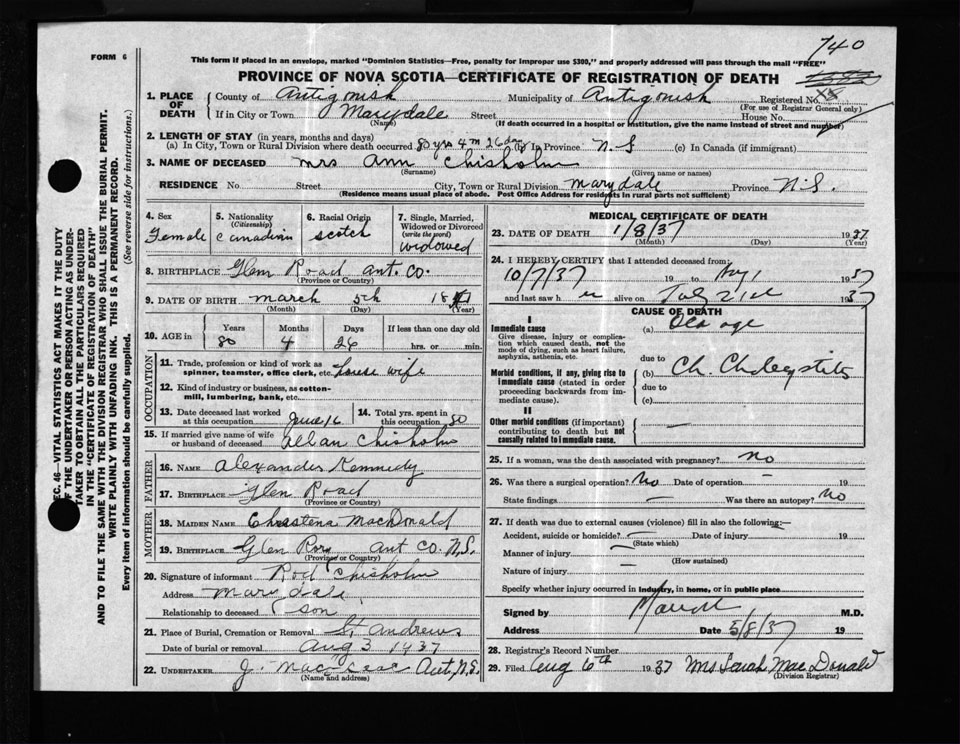 740
FORM 6
This form if placed in an envelope, marked "Dominion Statistics—Free, penalty for improper use $300," and properly addressed will pass through the mail "FREE"
PROVINCE OF NOVA SCOTIA—CERTIFICATE OF REGISTRATION OF DEATH
1. PLACE OF DEATH
County of Antigonish Municipality of Antigonish Registered No.
(For use of Registrar General only)
If in City or Town Marydale Street House No.
(Name) (If death occurred in a hospital or institution, give the name instead of street and number)
2. LENGTH OF STAY (in years, months and days)
(a) In City, Town or Rural Division where death occurred 80 yrs 4 m 26 days (b) In Province N.S (c) In Canada (if immigrant)
3. NAME OF DECEASED mrs Ann Chisholm
(Surname) (Given name or names)
RESIDENCE No. Street City, Town or Rural Division marydale Province N.S.
(Residence means usual place of abode. Post Office Address for residents in rural parts not sufficient)
4. Sex
Female
5. Nationality
(Citizenship)
Canadian
6. Racial Origin
Scotch
7. Single, Married,
Widowed or Divorced
(write the word)
widowed
8. BIRTHPLACE Glen Road Ant. Co.
(Province or Country)
9. DATE OF BIRTH march 5th 18
(Month) (Day) (Year)
10. AGE in
Years Months Days If less than one day old
80 4 26 hrs. or min.
OCCUPATION
11. Trade, profession or kind of work as
spinner, teamster, office clerk, etc. house wife
12. Kind of industry or business, as cotton-
mill, lumbering, bank, etc.
13. Date deceased last worked
at this occupation June 16
14. Total yrs. spent in
this occupation 50
15. If married give name of wife
or husband of deceased Allan Chisholm
FATHER
16. NAME Alexander Kennedy
17. BIRTHPLACE Glen Road
(Province or Country)
MOTHER
18. MAIDEN NAME Chrestena MacDonald
19. BIRTHPLACE Glen Ant Co. N.S.
(Province or Country)
20. Signature of informant Rod Chisholm
Address mary dale
Relationship to deceased (son)
21. Place of Burial, Cremation or Removal St Andrews
Date of burial or removal Aug 3 1937
22. UNDERTAKER J. Mac Isaac Ant, N.S.
(Name and address)
MEDICAL CERTIFICATE OF DEATH
23. DATE OF DEATH 1/8/37 1937
(Month) (Day) (Year)
24. I HEREBY CERTIFY that I attended deceased from:
10/7/37 19 to Aug 1 1937
and last saw h er alive on July 21st 1937
CAUSE OF DEATH
I
Immediate cause
Give disease, injury or complica-
tion which caused death, not the
mode of dying, such as heart failure,
asphyxia, asthenia, etc.
(a) Old age
due to
Morbid conditions, if any, giving rise to
immediate cause (stated in order
proceeding backwards from im-
mediate cause).
(b) Ch. Cholecystitis
due to
(c)
II
Other morbid conditions (if important)
contributing to death but not
causally related to immediate cause.
25. If a woman, was the death associated with pregnancy? no
26. Was there a surgical operation? No Date of operation 19
State findings Was there an autopsy? No
27. If death was due to external causes (violence) fill in also the following:—
Accident, suicide or homicide? Date of injury 19
(State which)
Manner of injury
(How sustained)
Nature of injury
Specify whether injury occurred in industry, in home, or in public place
Signed by M.D.
Address Date 5/8/37 19
28. Registrar's Record Number
29. Filed Aug 6th 1937 Mrs Sarah Mac Donald
(Division Registrar)
SEC. 46—VITAL STATISTICS ACT MAKES IT THE DUTY
OF THE UNDERTAKER OR PERSON ACTING AS UNDER-
TAKER TO OBTAIN ALL THE PARTICULARS REQUIRED
IN THE "CERTIFICATE OF REGISTRATION OF DEATH"
AND TO FILE THE SAME WITH THE DIVISION REGISTRAR WHO SHALL ISSUE THE BURIAL PERMIT.
WRITE PLAINLY WITH UNFADING INK. THIS IS A PERMANENT RECORD.
Every item of information should be carefully supplied. (See reverse side for instructions.)